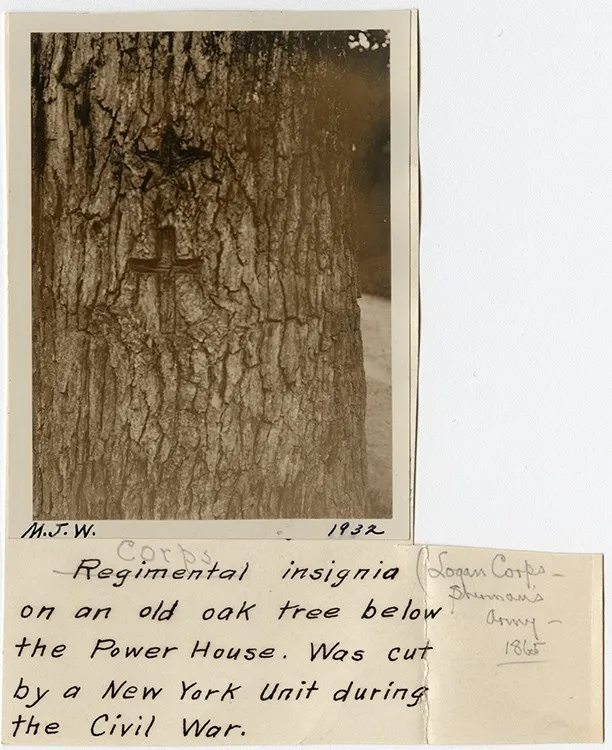 M.J.W. 1932
Corps
Regimental insignia
on an old oak tree below
the Power House. Was cut
by a New York Unit during
the Civil War.
(Logan Corps –
Sherman's
Army –
1865